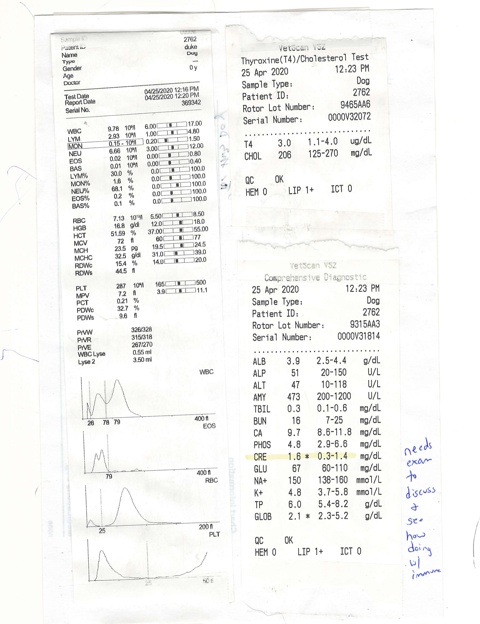 Sample ID 2762
Patient ID duke
Name Dog
Type —
Gender 0 y
Age
Doctor
Test Date 04/25/2020 12:16 PM
Report Date 04/25/2020 12:20 PM
Serial Number 369342
WBC 9.78 10³/l 6.00 17.00
LYM 2.93 10³/l 1.00 4.80
MON 0.15 - 10³/l 0.20 1.50
NEU 6.66 10³/l 3.00 12.00
EOS 0.02 10³/l 0.0 0.80
BAS 0.01 10³/l 0.0 0.40
LYM% 30.0 % 0.0 100.0
MON% 1.6 % 0.0 100.0
NEU% 68.1 % 0.0 100.0
EOS% 0.2 % 0.0 100.0
BAS% 0.1 % 0.0 100.0
RBC 7.13 5.50 8.50
HGB 16.8 g/dl 12.0 18.0
HCT 51.59 % 37.00 55.00
MCV 72 fl 60 77
MCH 23.5 pg 19.5 24.5
MCHC 32.5 g/dl 31.0 39.0
RDWc 15.4 % 14.0 20.0
RDWs 44.5 fl
PLT 287 10³/l 165 500
MPV 7.2 fl 3.9 11.1
PCT 0.21 %
PDWc 32.7 %
PDWs 9.6 fl
P/VW 328/328
P/VR 315/318
P/VE 267/270
WBC Lyse 0.55 ml
Lyse 2 3.50 ml
WBC
400 fl
26 78 79
EOS
400 fl
79
RBC
200 fl
25
PLT
25 50 fl
VetScan VS2
Thyroxine(T4)/Cholesterol Test
25 Apr 2020 12:23 PM
Sample Type: Dog
Patient ID: 2762
Rotor Lot Number: 9465AA6
Serial Number: 0000V32072
T4 3.0 1.1-4.0 ug/dL
CHOL 206 125-270 mg/dL
QC OK
HEM 0 LIP 1+ ICT 0
VetScan VS2
Comprehensive Diagnostic
25 Apr 2020 12:23 PM
Sample Type: Dog
Patient ID: 2762
Rotor Lot Number: 9315AA3
Serial Number: 0000V31814
ALB 3.9 2.5-4.4 g/dL
ALP 51 20-150 U/L
ALT 47 10-118 U/L
AMY 473 200-1200 U/L
TBIL 0.3 0.1-0.6 mg/dL
BUN 16 7-25 mg/dL
CA 9.7 8.6-11.8 mg/dL
PHOS 4.8 2.9-6.6 mg/dL
CRE 1.6 * 0.3-1.4 mg/dL
GLU 67 60-110 mg/dL
NA+ 150 138-160 mmol/L
K+ 4.8 3.7-5.8 mmol/L
TP 6.0 5.4-8.2 g/dL
GLOB 2.1 * 2.3-5.2 g/dL
QC OK
HEM 0 LIP 1+ ICT 0
needs
exam
to
discuss
&
see
how
doing
w/
immune